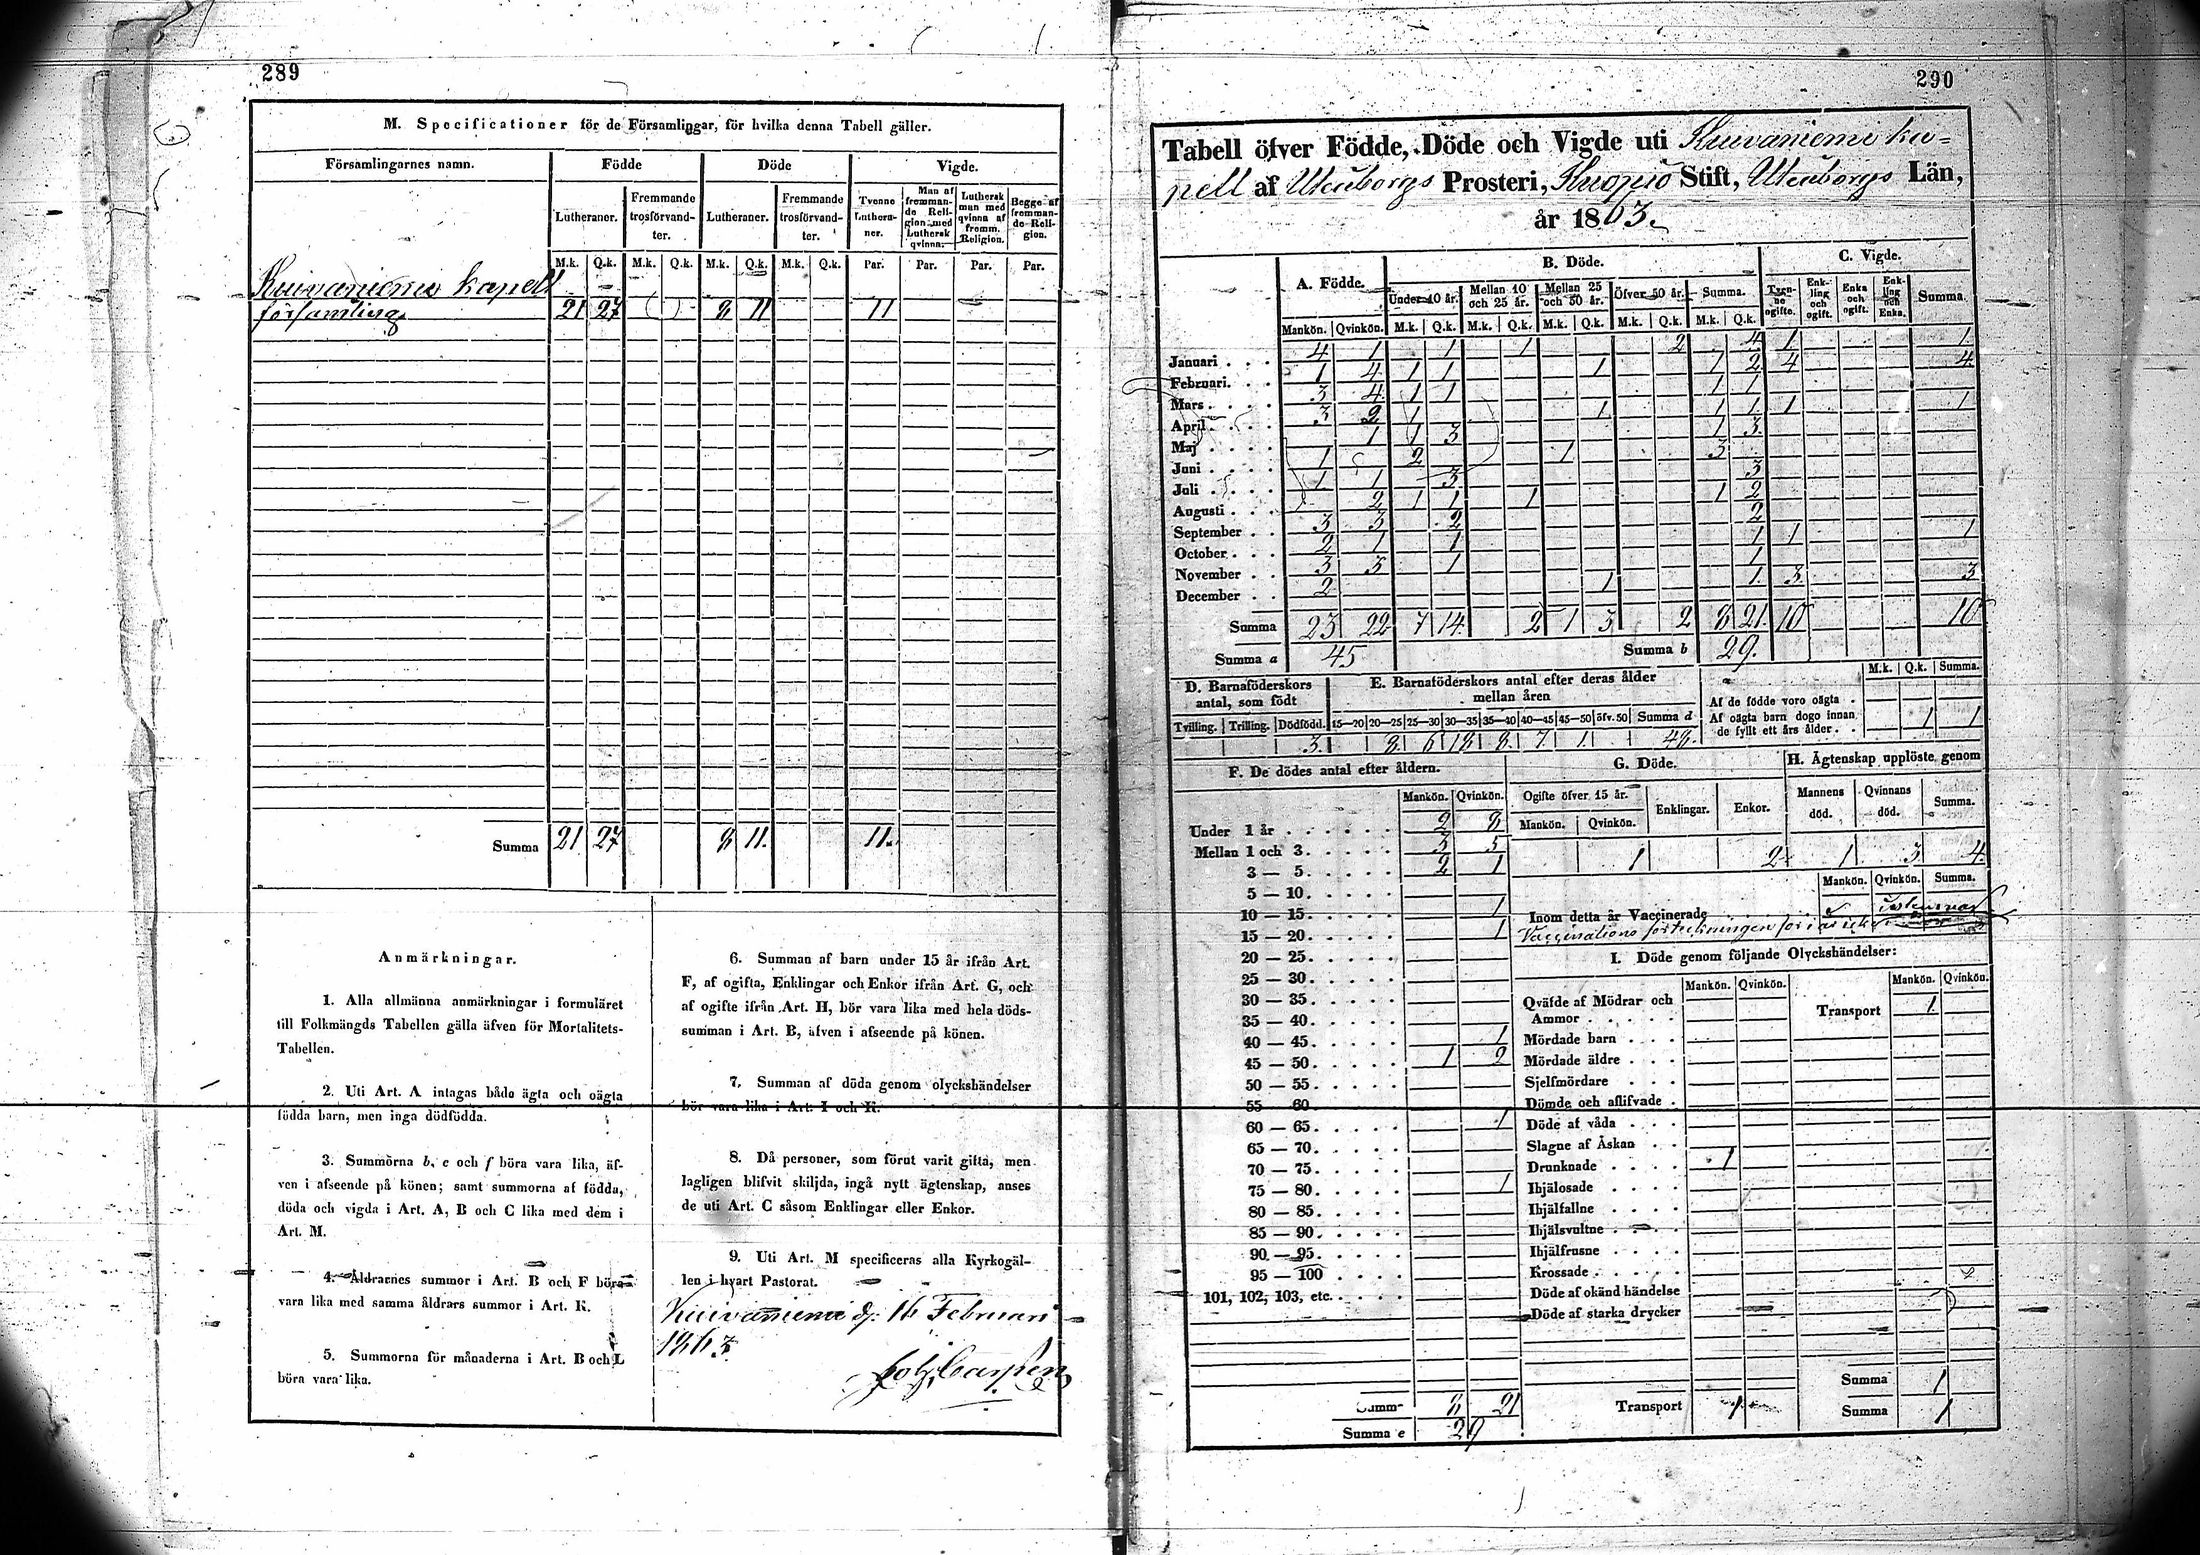 289
M. Specificationer för de Församlingar, för hvilka denna Tabell gäller.
Församlingarnes namn. Födde Döde Vigde.
Lutheraner. Fremmande trosförvandter. Lutheraner. Fremmande trosförvandter. Tvenne Lutheraner. Man af fremmande Religion med Luthersk qvinna. Luthersk man med qvinna af fremm. Religion. Begge af fremmande Religion.
M.k. Q.k. M.k. Q.k. M.k. Q.k. M.k. Q.k. Par. Par. Par. Par.
Kuivaniemi kapell
församling 21 27 8 11 11
Summa 21 27 8 11. 11.
Anmärkningar.
1. Alla allmänna anmärkningar i formuläret
till Folkmängds Tabellen gälla äfven för Mortalitets-
Tabellen.
2. Uti Art. A intagas både ägta och oägta
födda barn, men inga dödfödda.
3. Summorna b, c och f böra vara lika, äf-
ven i afseende på könen; samt summorna af födda,
döda och vigda i Art. A, B och C lika med dem i
Art. M.
4. Åldrarnes summor i Art. B och F böra
vara lika med samma åldrars summor i Art. K.
5. Summorna för månaderna i Art. B och L
böra vara lika.
6. Summan af barn under 15 år ifrån Art.
F, af ogifta, Enklingar och Enkor ifrån Art. G, och
af ogifte ifrån Art. H, bör vara lika med hela döds-
summan i Art. B, äfven i afseende på könen.
7. Summan af döda genom olyckshändelser
bör vara lika i Art. I och K.
8. Då personer, som förut varit gifta, men
lagligen blifvit skiljda, ingå nytt ägtenskap, anses
de uti Art. C såsom Enklingar eller Enkor.
9. Uti Art. M specificeras alla Kyrkogäl-
len i hvart Pastorat.
Kuivaniemi d. 16 Februari
1863.
290
Tabell öfver Födde, Döde och Vigde uti Kuivaniemi ka-
pell af Uleåborgs Prosteri, Kuopio Stift, Uleåborgs Län,
år 1863.
A. Födde. B. Döde. C. Vigde.
Under 10 år. Mellan 10 och 25 år. Mellan 25 och 50 år. Öfver 50 år. Summa. Tvenne ogifte. Enkling och ogift. Enka och ogift. Enkling och Enka. Summa.
Mankön. Qvinkön. M.k. Q.k. M.k. Q.k. M.k. Q.k. M.k. Q.k. M.k. Q.k.
Januari 4 1 1 1 2 4 1 1
Februari. 1 4 1 1 1 1 2 4 4
Mars 3 4 1 1 1 1
April 3 2 1 1 1 1 1 1
Maj 1 1 3 1 3
Juni 1 2 1 3
Juli 1 1 3 3
Augusti 2 1 1 1 1 2
September 3 3 2 2
October 2 1 1 1 1 1
November 3 3 1 1
December 2 1 1 3 3
Summa 23 22 7 14 2 1 3 2 8 21 10 10
Summa a 45 Summa b 29.
D. Barnaföderskors antal, som födt
Tvilling. Trilling. Dödfödd.
3.
E. Barnaföderskors antal efter deras ålder mellan åren
15—20 20—25 25—30 30—35 35—40 40—45 45—50 öfv. 50 Summa d
8 6 18 8 7 1 48.
M.k. Q.k. Summa.
Af de födde voro oägta
Af oägta barn dogo innan de fyllt ett års ålder 1 1
F. De dödes antal efter åldern.
Mankön. Qvinkön.
Under 1 år 2 8
Mellan 1 och 3 3 5
3 — 5 2 1
5 — 10
10 — 15 1
15 — 20 1
20 — 25
25 — 30
30 — 35
35 — 40
40 — 45 1
45 — 50 1 2
50 — 55
55 — 60
60 — 65 1
65 — 70
70 — 75
75 — 80 1
80 — 85
85 — 90
90 — 95
95 — 100
101, 102, 103, etc.
Summa 8 21
Summa e 29
G. Döde.
Ogifte öfver 15 år. Enklingar. Enkor.
Mankön. Qvinkön.
1 2
H. Ägtenskap upplöste genom
Mannens död. Qvinnans död. Summa.
1 3 4.
Mankön. Qvinkön. Summa.
Inom detta år Vaccinerade
Vaccinations förteckningen för i år
I. Döde genom följande Olyckshändelser:
Mankön. Qvinkön. Mankön. Qvinkön.
Qväfde af Mödrar och Ammor Transport 1
Mördade barn
Mördade äldre
Sjelfmördare
Dömde och aflifvade
Döde af våda
Slagne af Åskan
Drunknade 1
Ihjälosade
Ihjälfallne
Ihjälsvultne
Ihjälfrusne
Krossade
Döde af okänd händelse
Döde af starka drycker
Summa 1
Transport 1 Summa 1